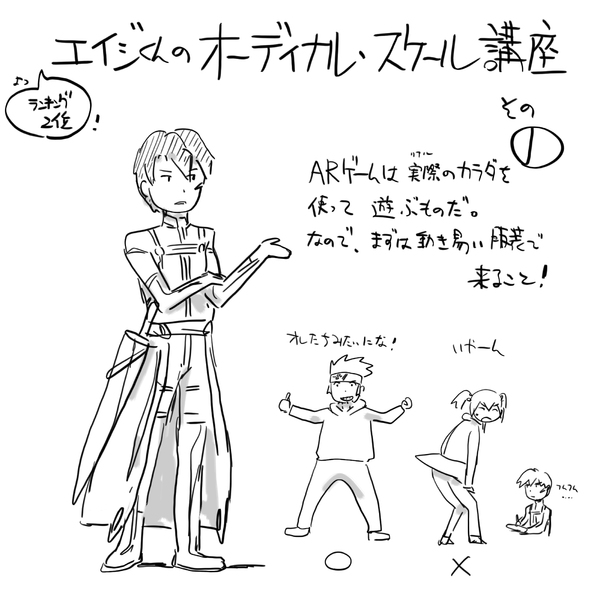 エイジくんのオーディカル・スケール講座
ランキング
2位
!
その
①
ARゲームは実際のカラダを
使って 遊ぶものだ。
なので、まずは動き易い服装で
来ること!
オレたちみたいにな!
いやーん
つんつん
○
×